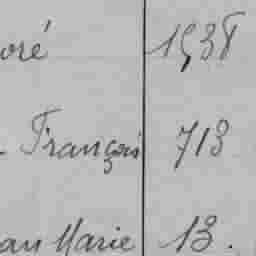 oré 1938
François 713
an Marie 13.